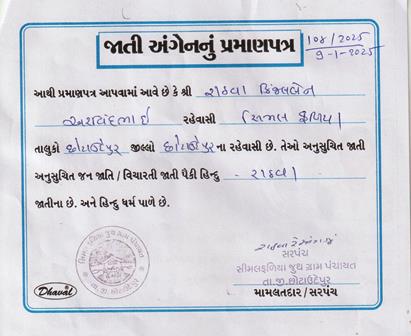 જાતી અંગેનનું પ્રમાણપત્ર
108/2025
9-1-2025
આથી પ્રમાણપત્ર આપવામાં આવે છે કે શ્રી રાઠવા કિંજલબેન
અરવિંદભાઈ રહેવાસી સિમલ ફળિયા
તાલુકો છોટાઉદેપુર જીલ્લો છોટાઉદેપુર ના રહેવાસી છે. તેઓ અનુસુચિત જાતી
અનુસુચિત જન જાતિ / વિચારતી જાતી પૈકી હિન્દુ - રાઠવા
જાતીના છે. અને હિન્દુ ધર્મ પાળે છે.
સરપંચ
સીમલફળિયા જુથ ગ્રામ પંચાયત
તા.જી.છોટાઉદેપુર
મામલતદાર / સરપંચ
Dhaval